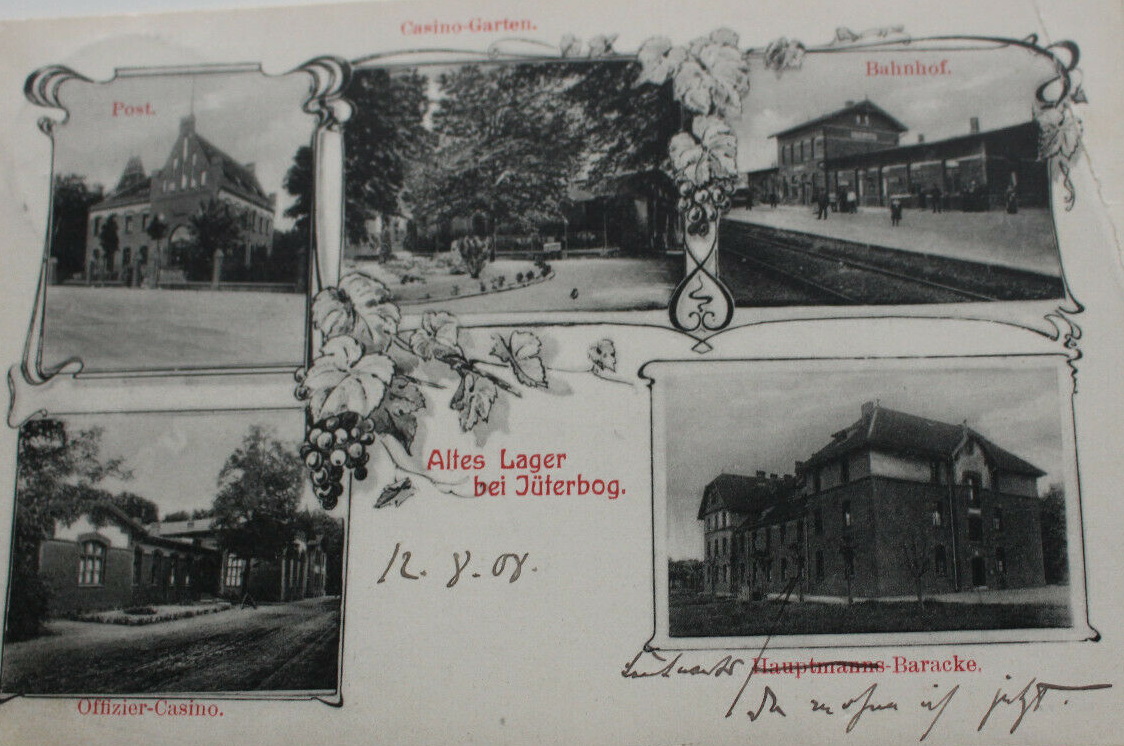 Casino-Garten.
Post.
Bahnhof.
Altes Lager
bei Jüterbog.
12. 8. 08.
Offizier-Casino.
Leutnants Hauptmanns-Baracke.
da wohne ich jetzt.